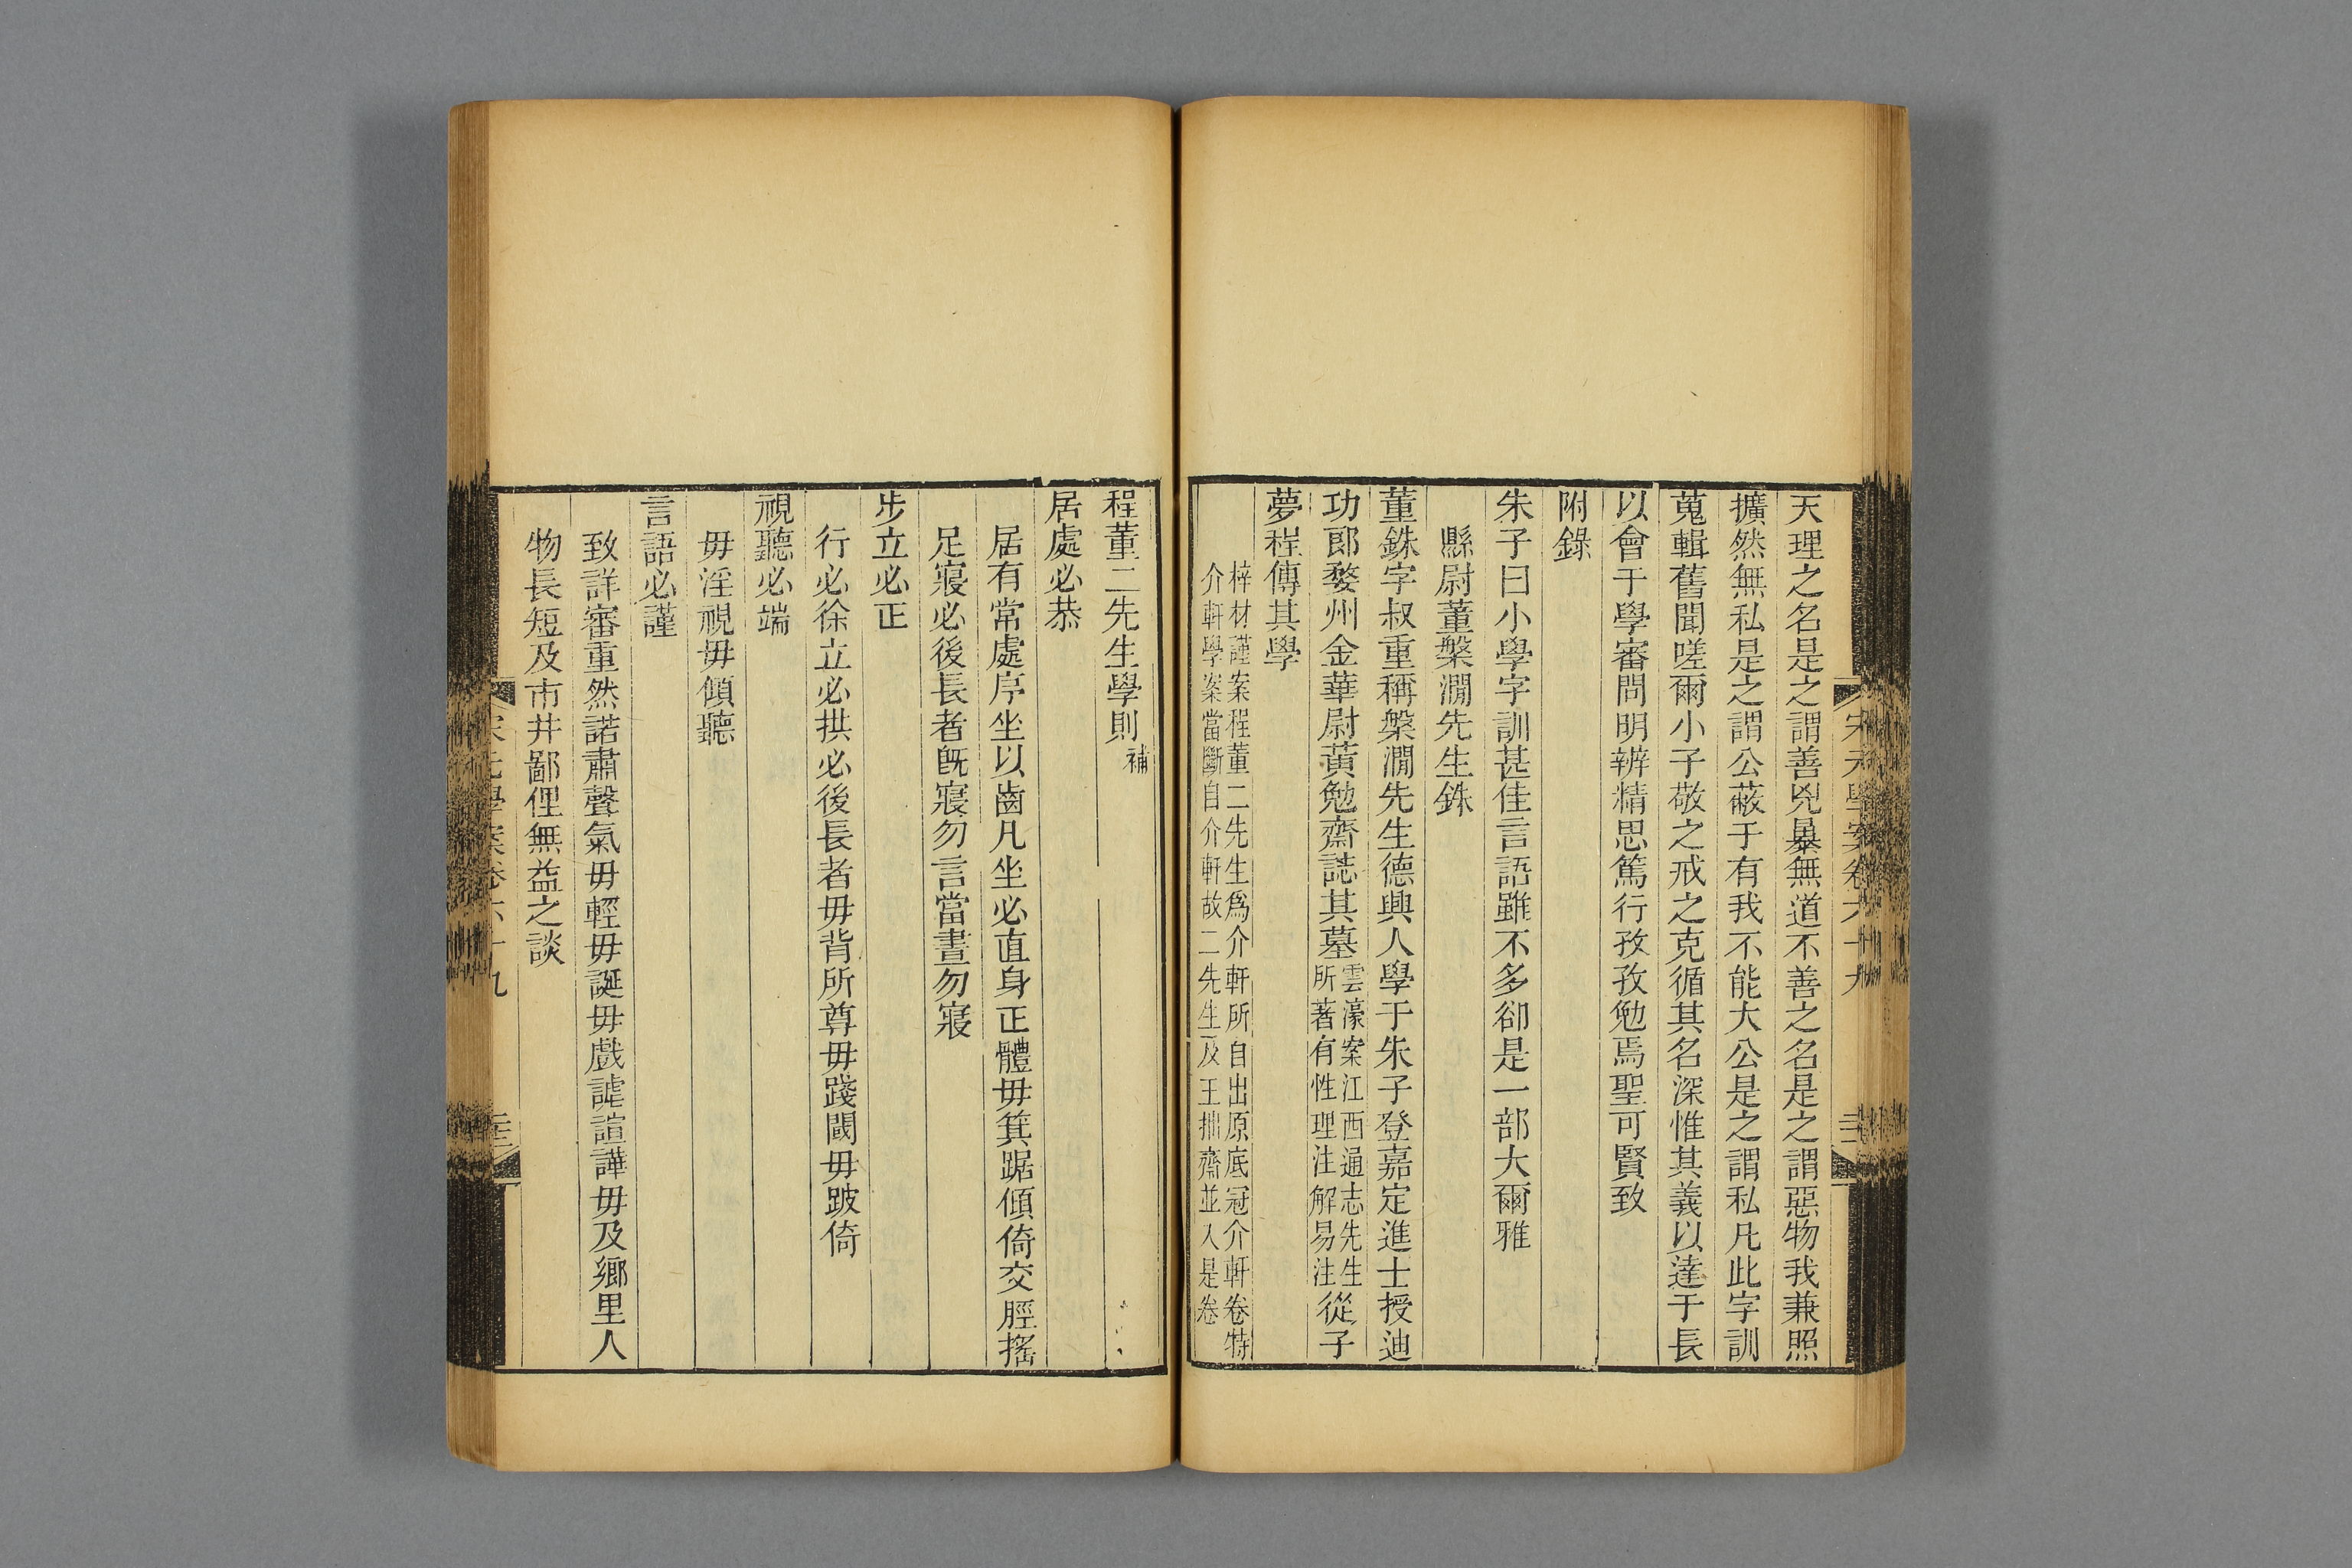 天理之名是之謂善兇暴無道不善之名是之謂惡物我兼照
擴然無私是之謂公蔽于有我不能大公是之謂私凡此字訓
蒐輯舊聞嗟爾小子敬之戒之克循其名深惟其義以達于長
以會于學審問明辨精思篤行孜孜勉焉聖可賢致
附錄
朱子曰小學字訓甚佳言語雖不多卻是一部大爾雅
縣尉董槃澗先生銖
董銖字叔重稱槃澗先生德興人學于朱子登嘉定進士授迪
功郎婺州金華尉黃勉齋誌其墓雲濠案江西通志先生所著有性理注解易注從子
夢程傳其學
梓材謹案程董二先生爲介軒所自出原底冠介軒卷特
介軒學案當斷自介軒故二先生及王拙齋並入是卷
程董二先生學則補
居處必恭
居有常處序坐以齒凡坐必直身正體毋箕踞傾倚交脛搖
足寢必後長者既寢勿言當晝勿寢
步立必正
行必徐立必拱必後長者毋背所尊毋踐閾毋跛倚
視聽必端
毋淫視毋傾聽
言語必謹
致詳審重然諾肅聲氣毋輕毋誕毋戲謔諠譁毋及鄉里人
物長短及市井鄙俚無益之談
宋元學案卷六十九